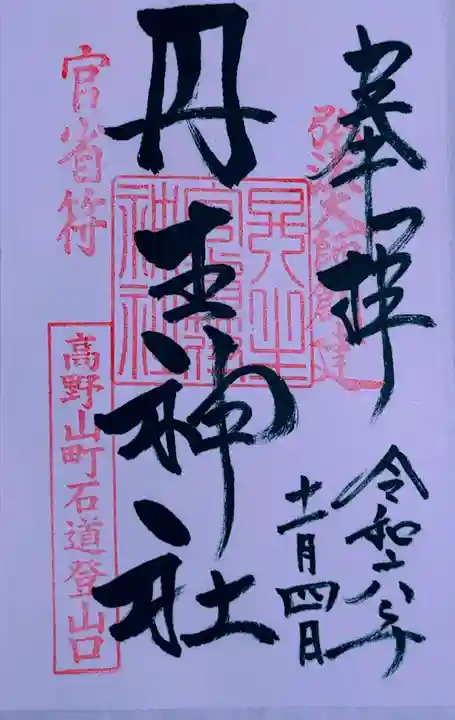 奉拝
弘法大師創建
令和六年
十一月四日
丹生神社
官省符
高野山町石道登山口